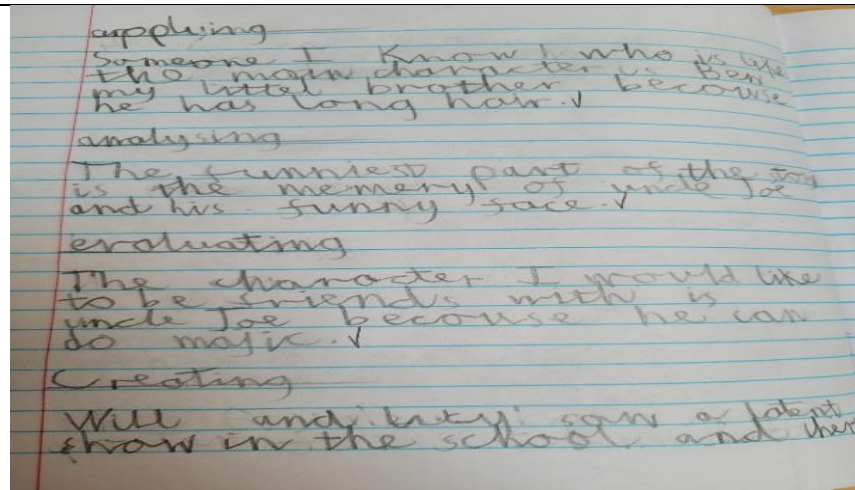 applying
Someone I know who is like
the main character is Ben
my littel brother, becouse
he has long hair.
analysing
The funniest part of the
is the memery of uncle Joe
and his funny face.
evaluating
The character I would like
to be friends with is
uncle Joe becouse he can
do majic.
Creating
Will and saw a talent
show in the school and then